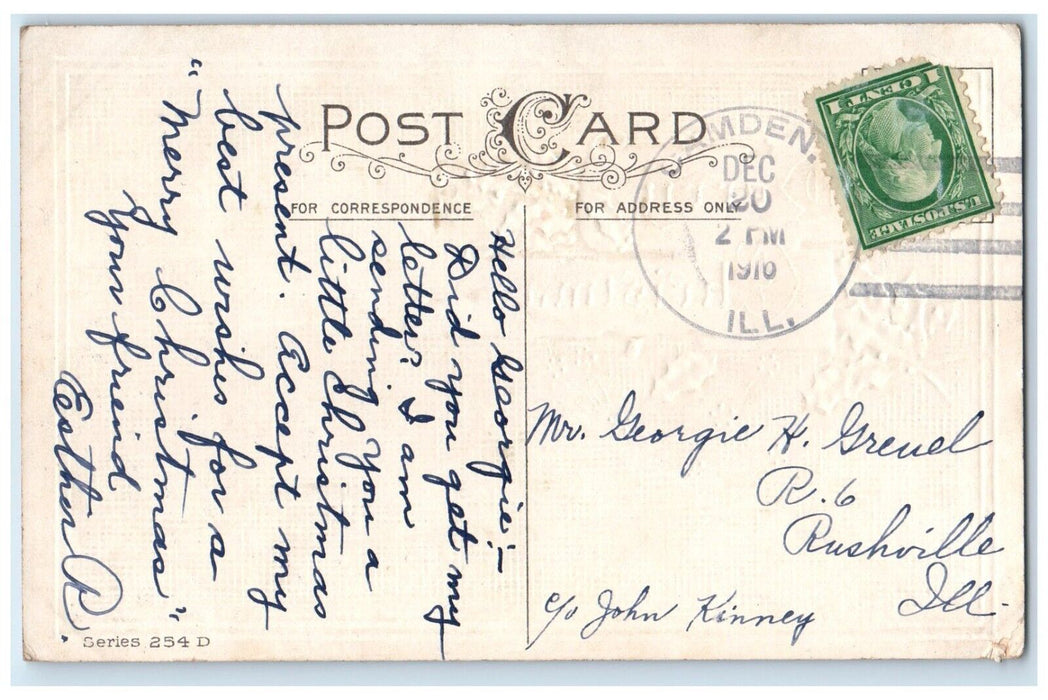 POST CARD
FOR CORRESPONDENCE
FOR ADDRESS ONLY
Hello Georgie:—
Did you get my
letter? I am
sending you a
little Christmas
present. Accept my
best wishes for a
"Merry Christmas"
your friend
Esther R.
AMDEN.
DEC
20
2 PM
1916
ILL.
1 CENT 1
U.S. POSTAGE
Mr. Georgie H. Greuel
R. 6
Rushville
Ill.
c/o John Kinney
Series 254 D